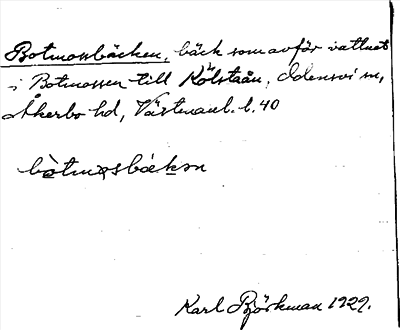 Botmossbäcken, bäck som avför vattnet
i Botmossen till Kölstaån, Odensvi sn,
Åkerbo hd, Västmanl. l. 40
bòtmosbækən
Karl Björkman 1929.